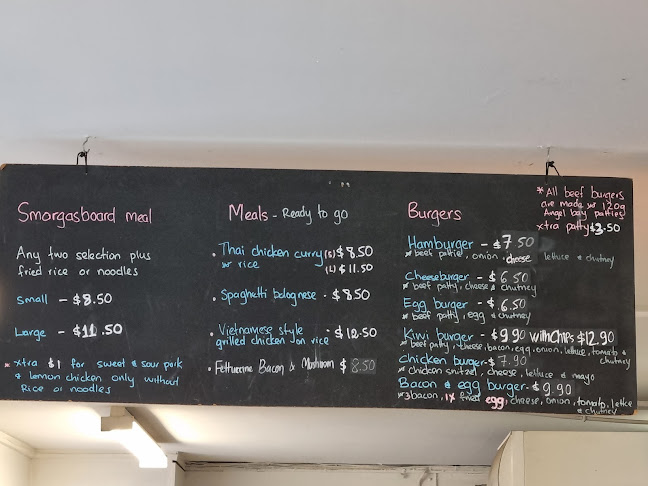 Smorgasboard meal
Any two selection plus
fried rice or noodles
Small - $8.50
Large - $11.50
* xtra $1 for sweet & sour pork
& lemon chicken only without
Rice or noodles
Meals - Ready to go
• Thai chicken curry (s) $8.50
w rice (L) $11.50
• Spaghetti bolognese - $8.50
• Vietnamese style - $12.50
grilled chicken on rice
• Fettuccine Bacon & Mushroom $8.50
Burgers
* All beef burgers
are made w 120g
Angel bay patties
xtra patty $3.50
Hamburger - $7.50
* beef pattie, onion, cheese lettuce & chutney
Cheeseburger - $6.50
* beef patty, cheese & chutney
Egg burger - $6.50
* beef patty, egg & chutney
Kiwi burger - $9.90 with chips $12.90
* beef patty, cheese, bacon, egg, onion, lettuce, tomato &
chutney
Chicken burger - $7.90
* chicken snitzel, cheese, lettuce & mayo
Bacon & egg burger - $9.90
*3 bacon, 1x fried egg, cheese, onion, tomato, lettce
& chutney